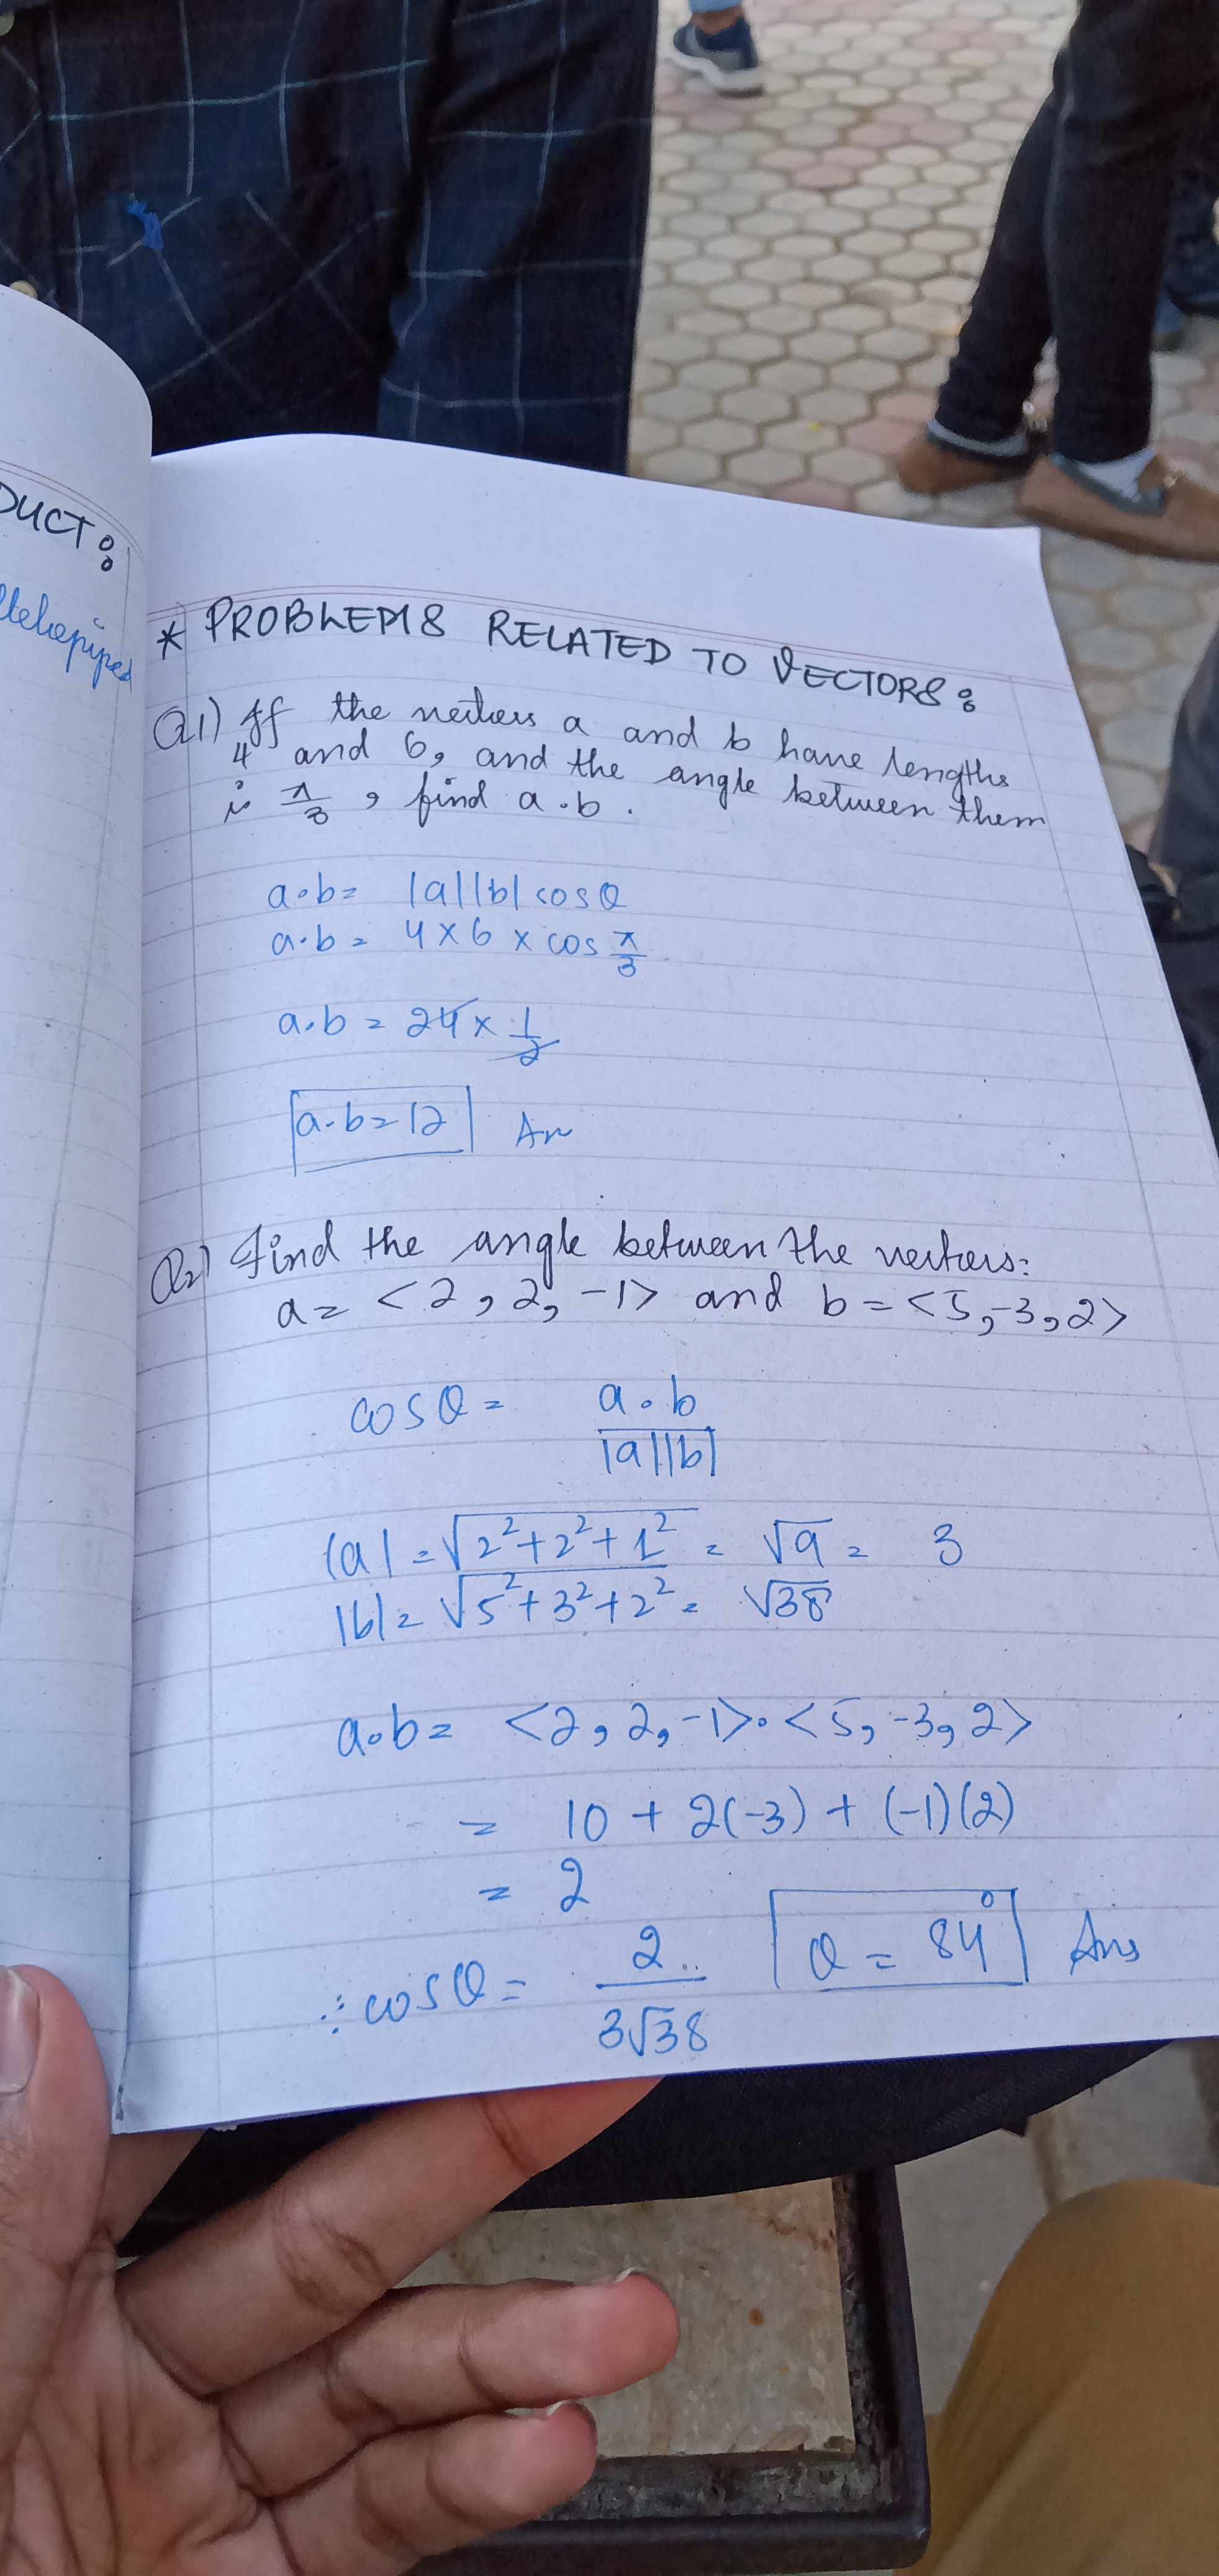 DUCT:
* PROBLEMS RELATED TO VECTORS:
Q1) If the vectors a and b have lengths
4 and 6, and the angle between them
is π/3, find a.b.
a.b = |a||b| cosθ
a.b = 4 × 6 × cos π/3
a.b = 24 × 1/2
a.b = 12 Ans
Q2) Find the angle between the vectors:
a = <2, 2, -1> and b = <5, -3, 2>
cosθ = a.b / |a||b|
|a| = √2²+2²+1² = √9 = 3
|b| = √5²+3²+2² = √38
a.b = <2, 2, -1>.<5, -3, 2>
= 10 + 2(-3) + (-1)(2)
= 2
∴ cosθ = 2 / 3√38 θ = 84° Ans